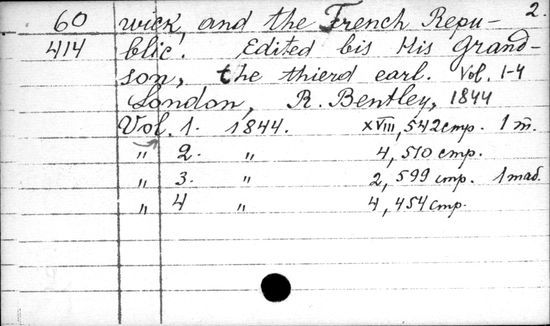 2.
60 wick, and the French Repu-
414 blic. Edited bis His Grand-
son, the thierd earl. Vol. 1-4
London, R. Bentley, 1844
Vol. 1. 1844. XVIII, 542 стр. 1 п.
" 2. " 4, 510 стр.
" 3. " 2, 599 стр. 1 таб.
" 4 " 4, 454 стр.